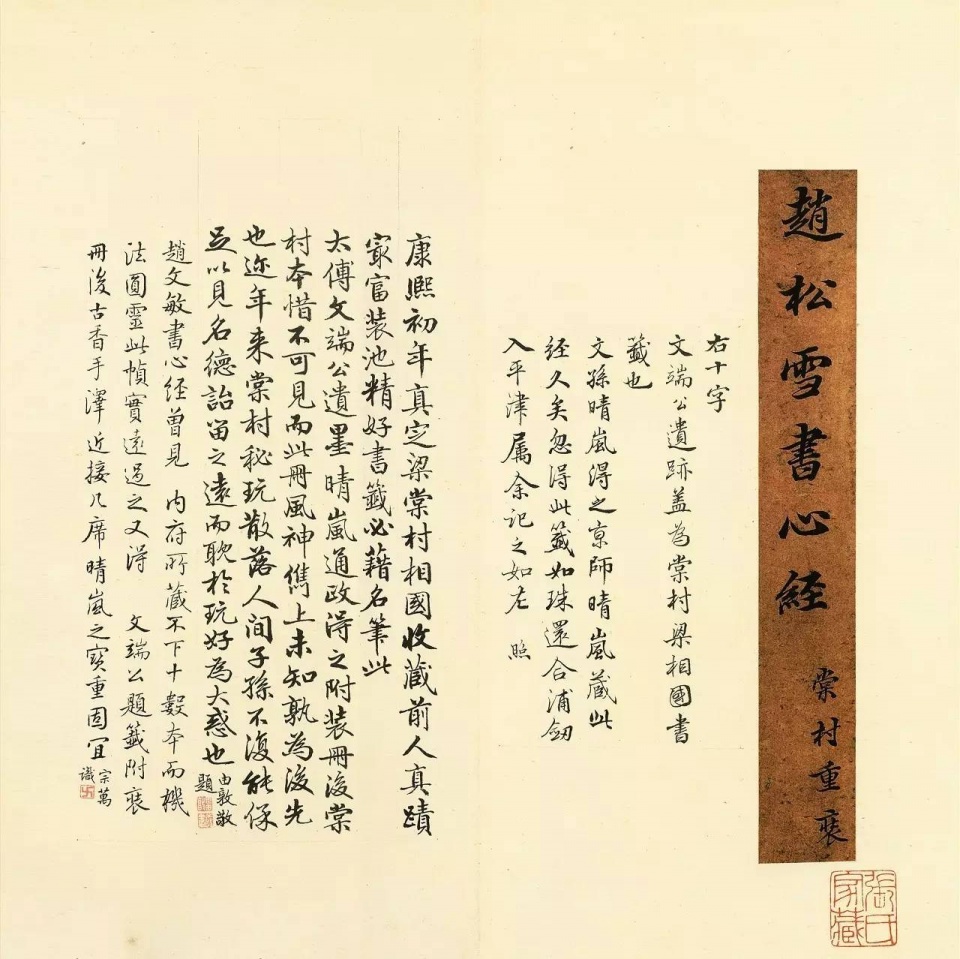 趙松雪書心經
棠村重裝
張氏家藏
右十字
文端公遺跡盖為棠村梁相國書
籤也
文孫晴嵐得之京師晴嵐藏此
经久矣忽得此籤如珠還合浦劒
入平津属余记之如左 照
康熙初年真定梁棠村相國收藏前人真蹟
家富装池精好書籤必藉名筆此
太傅文端公遺墨晴嵐通政得之附装冊後棠
村本惜不可見而此冊風神儁上未知孰為後先
也迩年来棠村秘玩散落人间子孫不復能保
足以見名德詒留之遠而耽於玩好為大惑也
由敦敬題
趙文敏書心经曾見 内府所藏不下十數本而機
法圓靈此幀實遠過之又得 文端公題籤附裝
冊後古香手澤近接几席晴嵐之寶重固宜
宗萬識